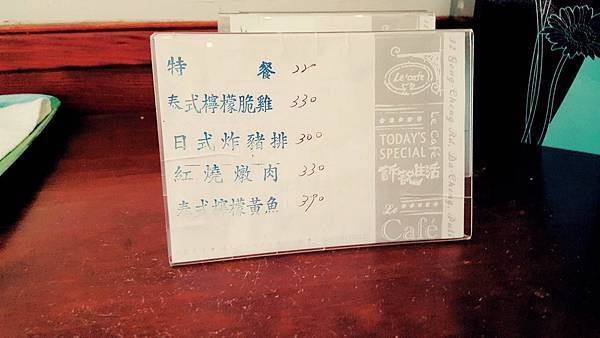 特餐
泰式檸檬脆雞 330
日式炸豬排 300
紅燒燉肉 330
泰式檸檬黃魚 390
Le café
TODAY'S
SPECIAL
生活
Le
Café
Le Café